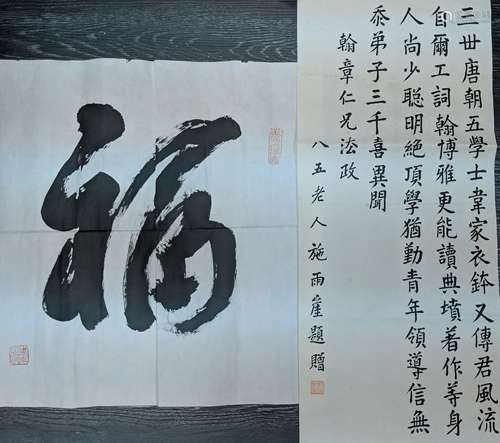 三丗唐朝五學士韋家衣鉢又傳君風流
自爾工詞翰博雅更能讀典墳著作等身
人尚少聰明絕頂學猶勤青年領導信無
忝弟子三千喜異聞
翰章仁兄法政
八五老人施雨崖題贈
福